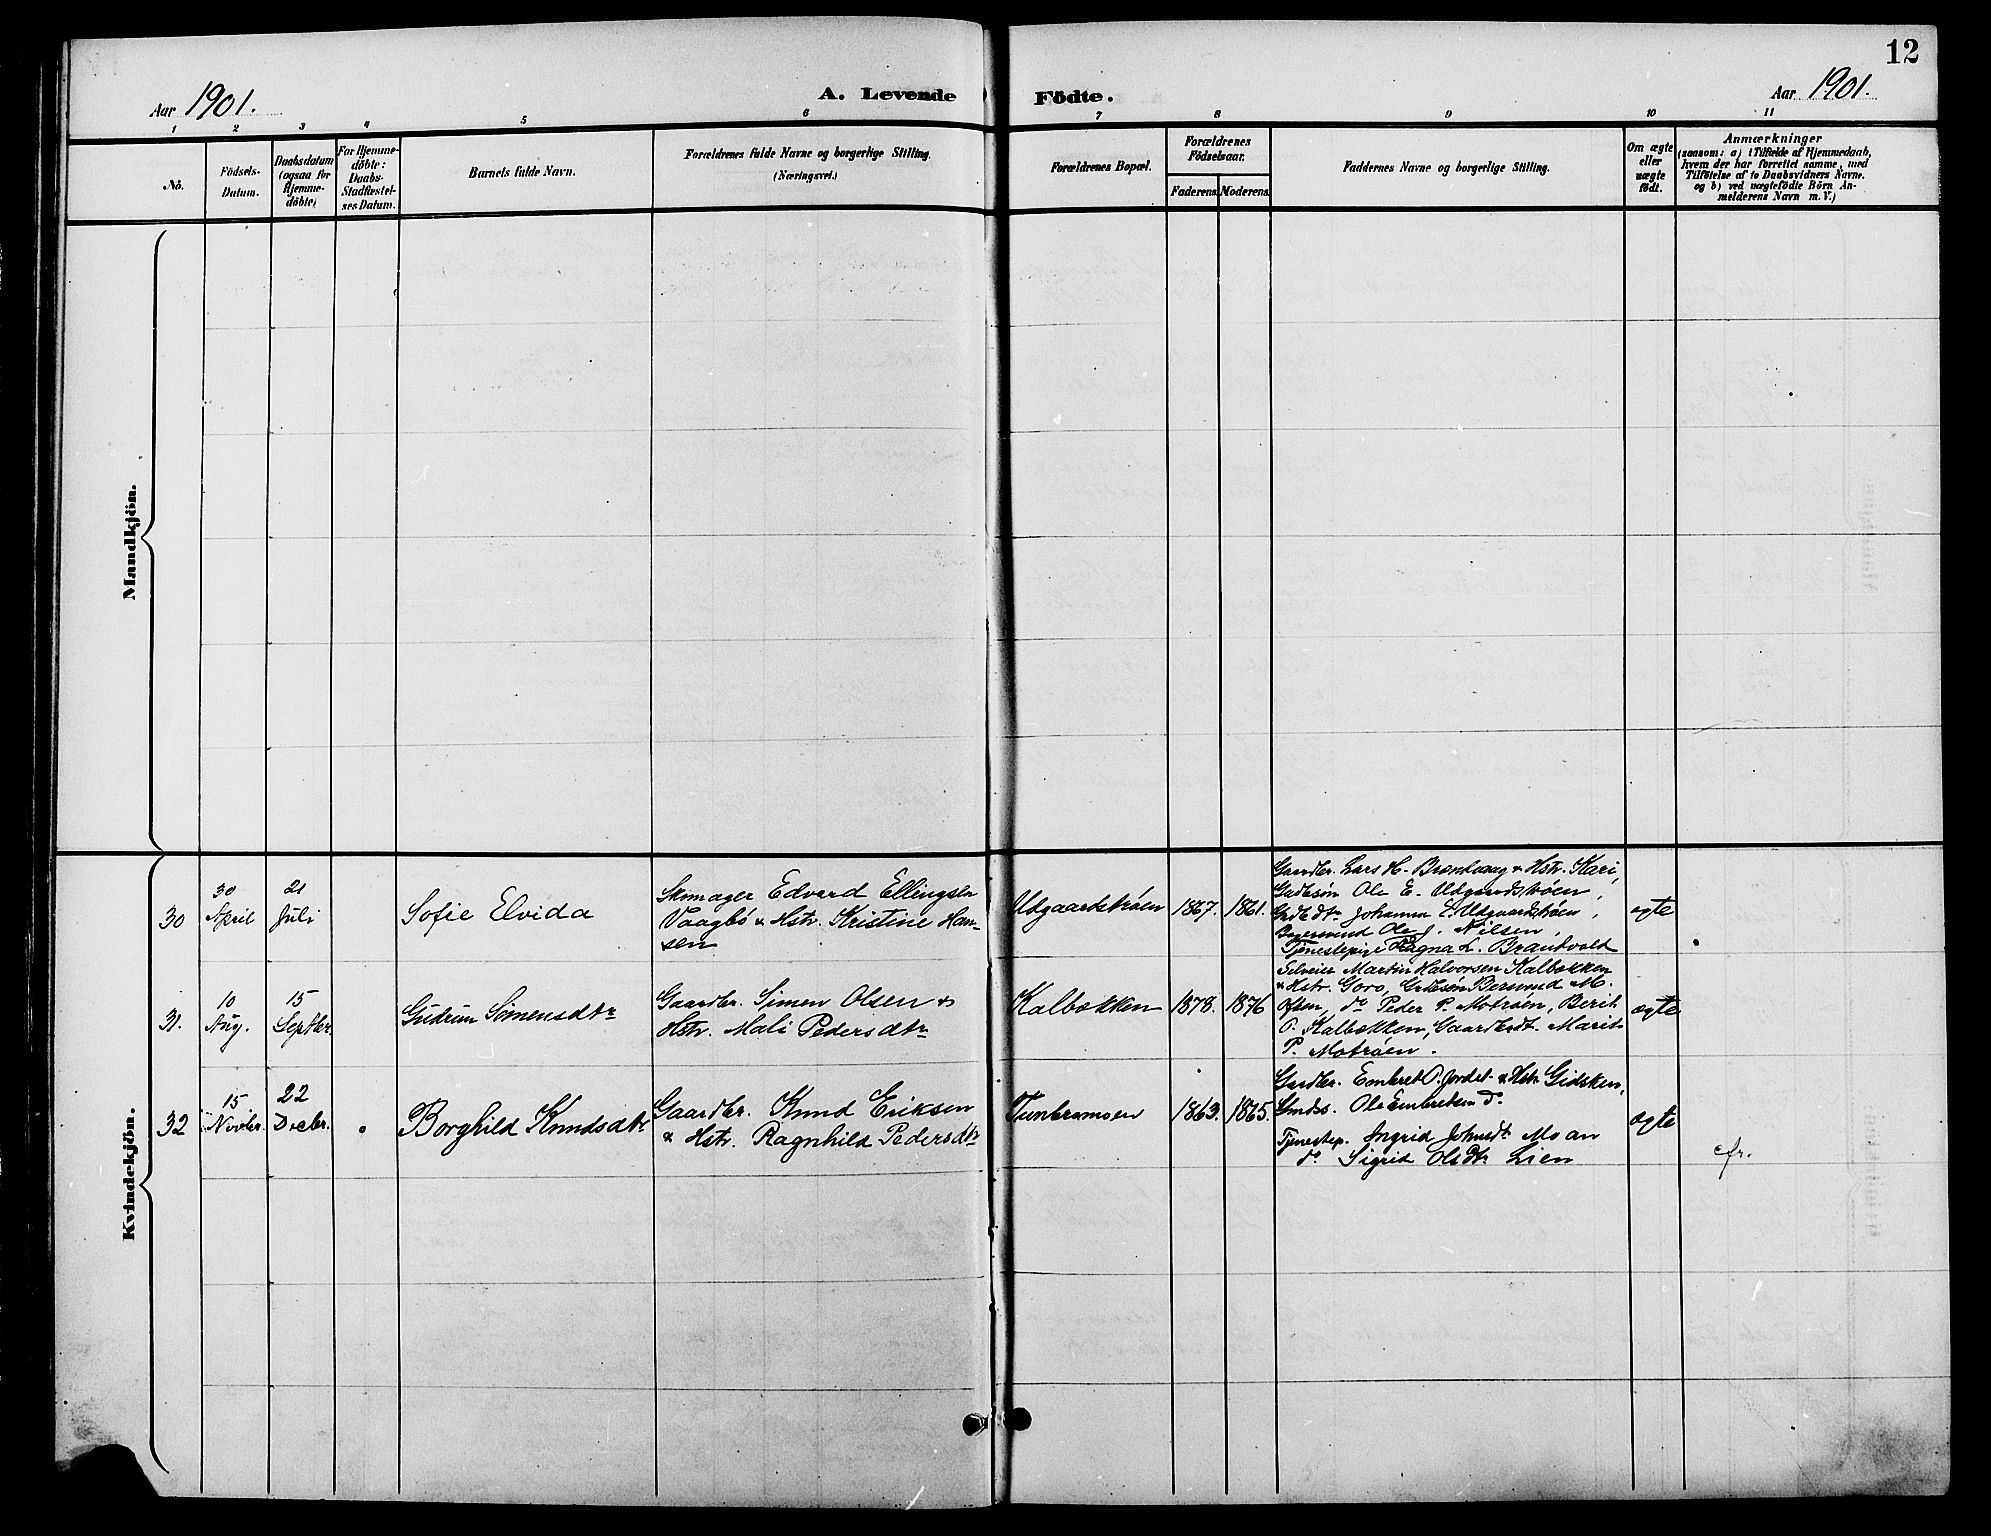 12
Aar 1901.
A. Levende Födte.
Aar 1901.
1 2 3 4 5 6 7 8 9 10 11
No.
Födsels-
Datum.
Daabsdatum
(ogsaa for
Hjemme-
döbte)
For Hjemme-
döbte:
Daabs-
Stadfæstel-
ses Datum.
Barnets fulde Navn.
Forældrenes fulde Navne og borgerlige Stilling.
(Næringsvei.)
Forældrenes Bopæl.
Forældrenes
Födselsaar.
Faderens. Moderens.
Faddernes Navne og borgerlige Stilling.
Om ægte
eller
uægte
födt.
Anmærkninger
(saasom: a) i Tilfælde af Hjemmedaab,
hvem der har forrettet samme, med
Tilföielse af to Daabsvidners Navne.
og b) ved uægtefödte Börn An-
melderens Navn m. V.)
Mandkjön.
Kvindekjön.
30
30
April
21
Juli
Sofie Elvida
Skomager Edvard Ellingsen
Vaagbö & Hstr. Kristine Han-
sen
Udgaardströen
1867.
1861.
Gaardbr. Lars H. & Hstr. Kari,
Ole E. Udgaardströen,
Johanna E. Udgaardströen,
Ole J. Nilsen,
Tjenestepige Ragna L. Brantvold
ægte
31.
10
Aug.
15
Septbr.
Gudrun Simensdtr
Gaardbr. Simen Olsen &
Hstr. Mali Pedersdtr
Kalbækken
1878.
1876
Selveier Martin Halvorsen Kalbækken
& Hstr. Goro, Bersvend M.
do Peder P. Moträen, Berit
O. Kalbækken, Marit
P. Moträen.
ægte
32
15
Novbr.
22
Decbr.
Borghild Knudsdtr
Gaardbr. Knud Eriksen
& Hstr. Ragnhild Pedersdtr
Tunbramoen
1863.
1865.
Gardbr. Embret O. Jordet & Hstr Gidsken,
Ole Embretsen do
Tjenestep. Ingrid Johnsdt. Moan
do Sigrid Olsdtr Lien
ægte
cfr.